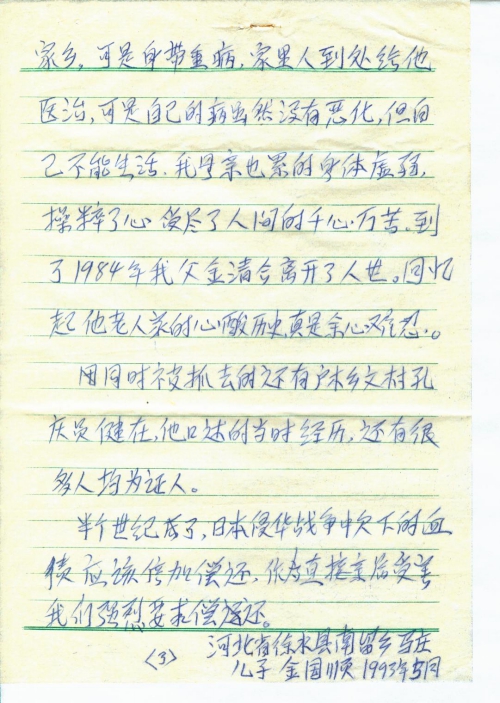 家乡,可是身带重病,家里人到处给他
医治,可是自己的病虽然没有恶化,但自
己不能生活.我母亲也累的身体虚弱,
操粹了心 受尽了人间的千心万苦,到
了1984年我父金清合离开了人世。回忆
起他老人家的心酸历史真是余心难忍。
用同时被抓去的还有户木乡文村孔
庆员健在,他口述的当时经历,还有很
多人均为证人。
半个世纪末了,日本侵华战争中欠下的血
债应该倍加偿还,作为直接亲属受害
我们强烈要求偿还。
河北省徐水县南留乡马庄
儿子 金国顺 1993年5月
〈3〉